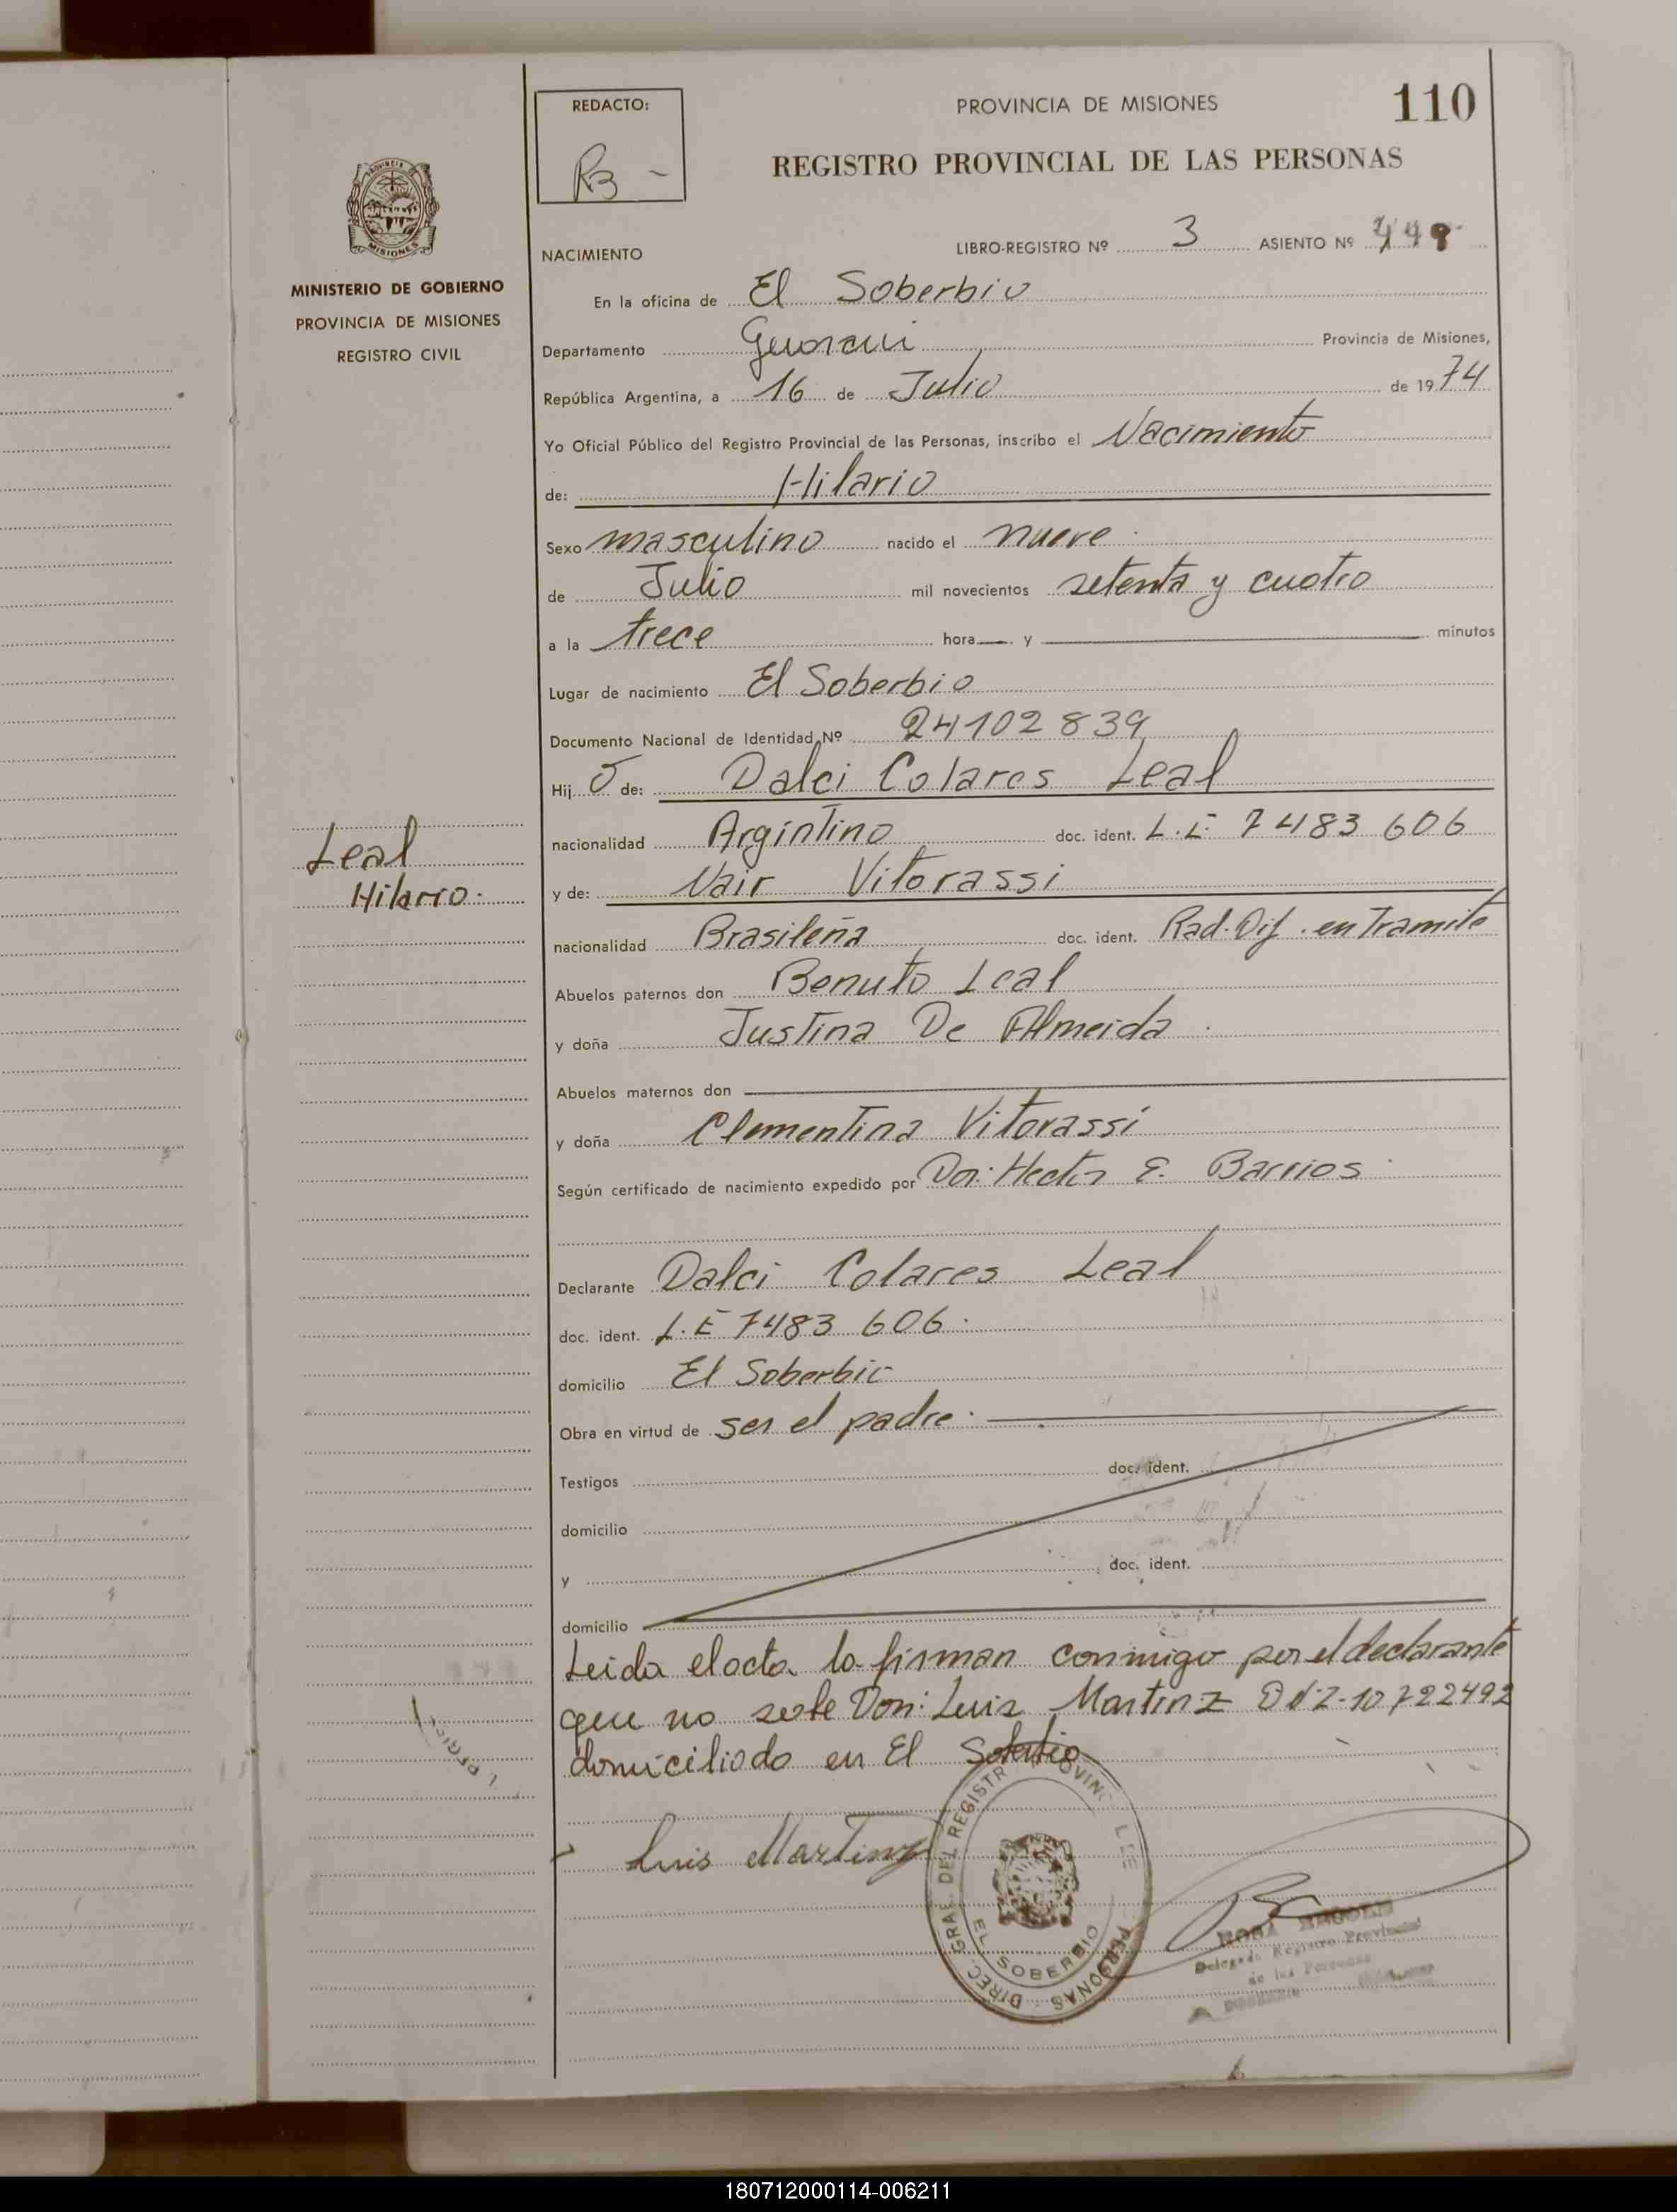 110
REDACTO:
PROVINCIA DE MISIONES
REGISTRO PROVINCIAL DE LAS PERSONAS
LIBRO-REGISTRO Nº 3 ASIENTO Nº
NACIMIENTO
PROVINCIA DE
MISIONES
MINISTERIO DE GOBIERNO
PROVINCIA DE MISIONES
REGISTRO CIVIL
En la oficina de El Soberbio
Departamento Guarani Provincia de Misiones,
República Argentina, a 16 de Julio de 1974
Yo Oficial Público del Registro Provincial de las Personas, inscribo el Nacimiento
de: Hilario
Sexo masculino nacido el nueve
de Julio mil novecientos setenta y cuatro
a la trece hora y minutos
Lugar de nacimiento El Soberbio
Documento Nacional de Identidad Nº 24102839
Hij o de: Dalci Colares Leal
nacionalidad Argintino doc. ident. L.E. 7483 606
Leal
Hilario.
y de: Nair Vitorassi
nacionalidad Brasileña doc. ident. Rad. Dif. en Tramite
Abuelos paternos don Benuto Leal
y doña Justina De Almeida
Abuelos maternos don
y doña Clementina Vitorassi
Según certificado de nacimiento expedido por Don: Hector E. Barrios
Declarante Dalci Colares Leal
doc. ident. L.E 7483 606.
domicilio El Soberbio
Obra en virtud de ser el padre.
Testigos doc. ident.
domicilio
y doc. ident.
domicilio
Leida el acta la firman conmigo por el declarante
que no sabe Don: Luis Martinz D N I-10722492
domiciliado en El Soberbio
Luis Martinz
DIREC. GRAL. DEL REGISTR PROVINC LEE PERSONAS
EL SOBERBIO
ROSA
Delegada Registro Provincial
de las Personas
180712000114-006211